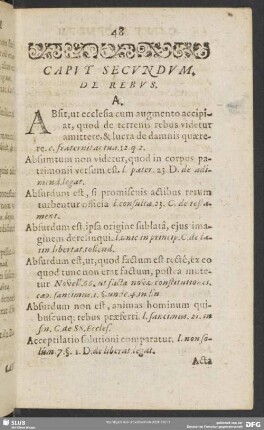 48
CAPUT SECVNDVM,
DE REBVS.
A.
ABsit, ut ecclesia cum augmento accipi-
at, quod de terrenis rebus videtur
amittere, & lucra de damnis quærere-
re. c. fraternitas tua. 12. q. 2.
Absumtum non videtur, quod in corpus pa-
trimonii versum est. l. pater. 23. D. de adi-
mend. legat.
Absurdum est, si promiscuis actibus rerum
turbentur officia l. consulta. 23. C. de testa-
ment.
Absurdum est ipsa origine sublatâ, ejus ima-
ginem derelinqui. l. unic. in princip. C. de la-
tin. libertat. tollend.
Absurdum est, ut, quod factum est rectè, ex eo
quod tunc non erat factum, postea mute-
tur
Absurdum non est, animas hominum qui-
buscunq; rebus præferri. l. sancimus. 21. in
fin. C. de SS. Eccles.
Acceptilatio solutioni comparatur. l. non so-
lùm. 7. §. 1. D. de liberat. legat.
Acta
SLUB
DFG